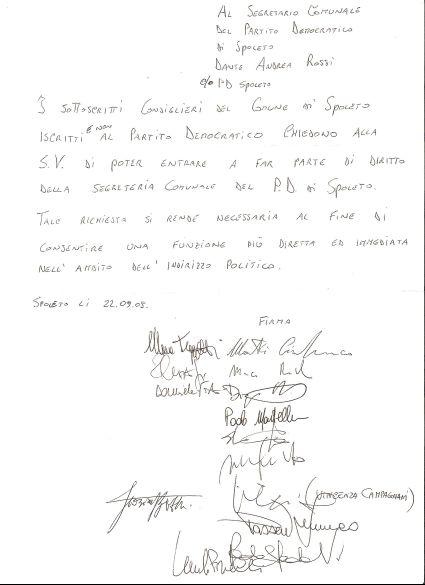 Al Segretario Comunale
del Partito Democratico
di Spoleto
Dante Andrea Rossi
c/o PD Spoleto
I sottoscritti Consiglieri del Comune di Spoleto
iscritti e non al Partito Democratico chiedono alla
S.V. di poter entrare a far parte di diritto
della Segreteria Comunale del P.D. di Spoleto.
Tale richiesta si rende necessaria al fine di
consentire una funzione più diretta ed immediata
nell'ambito dell'indirizzo politico.
Spoleto lì 22.09.08.
Firma
Paolo Martellini
(Vincenza Campagnani)